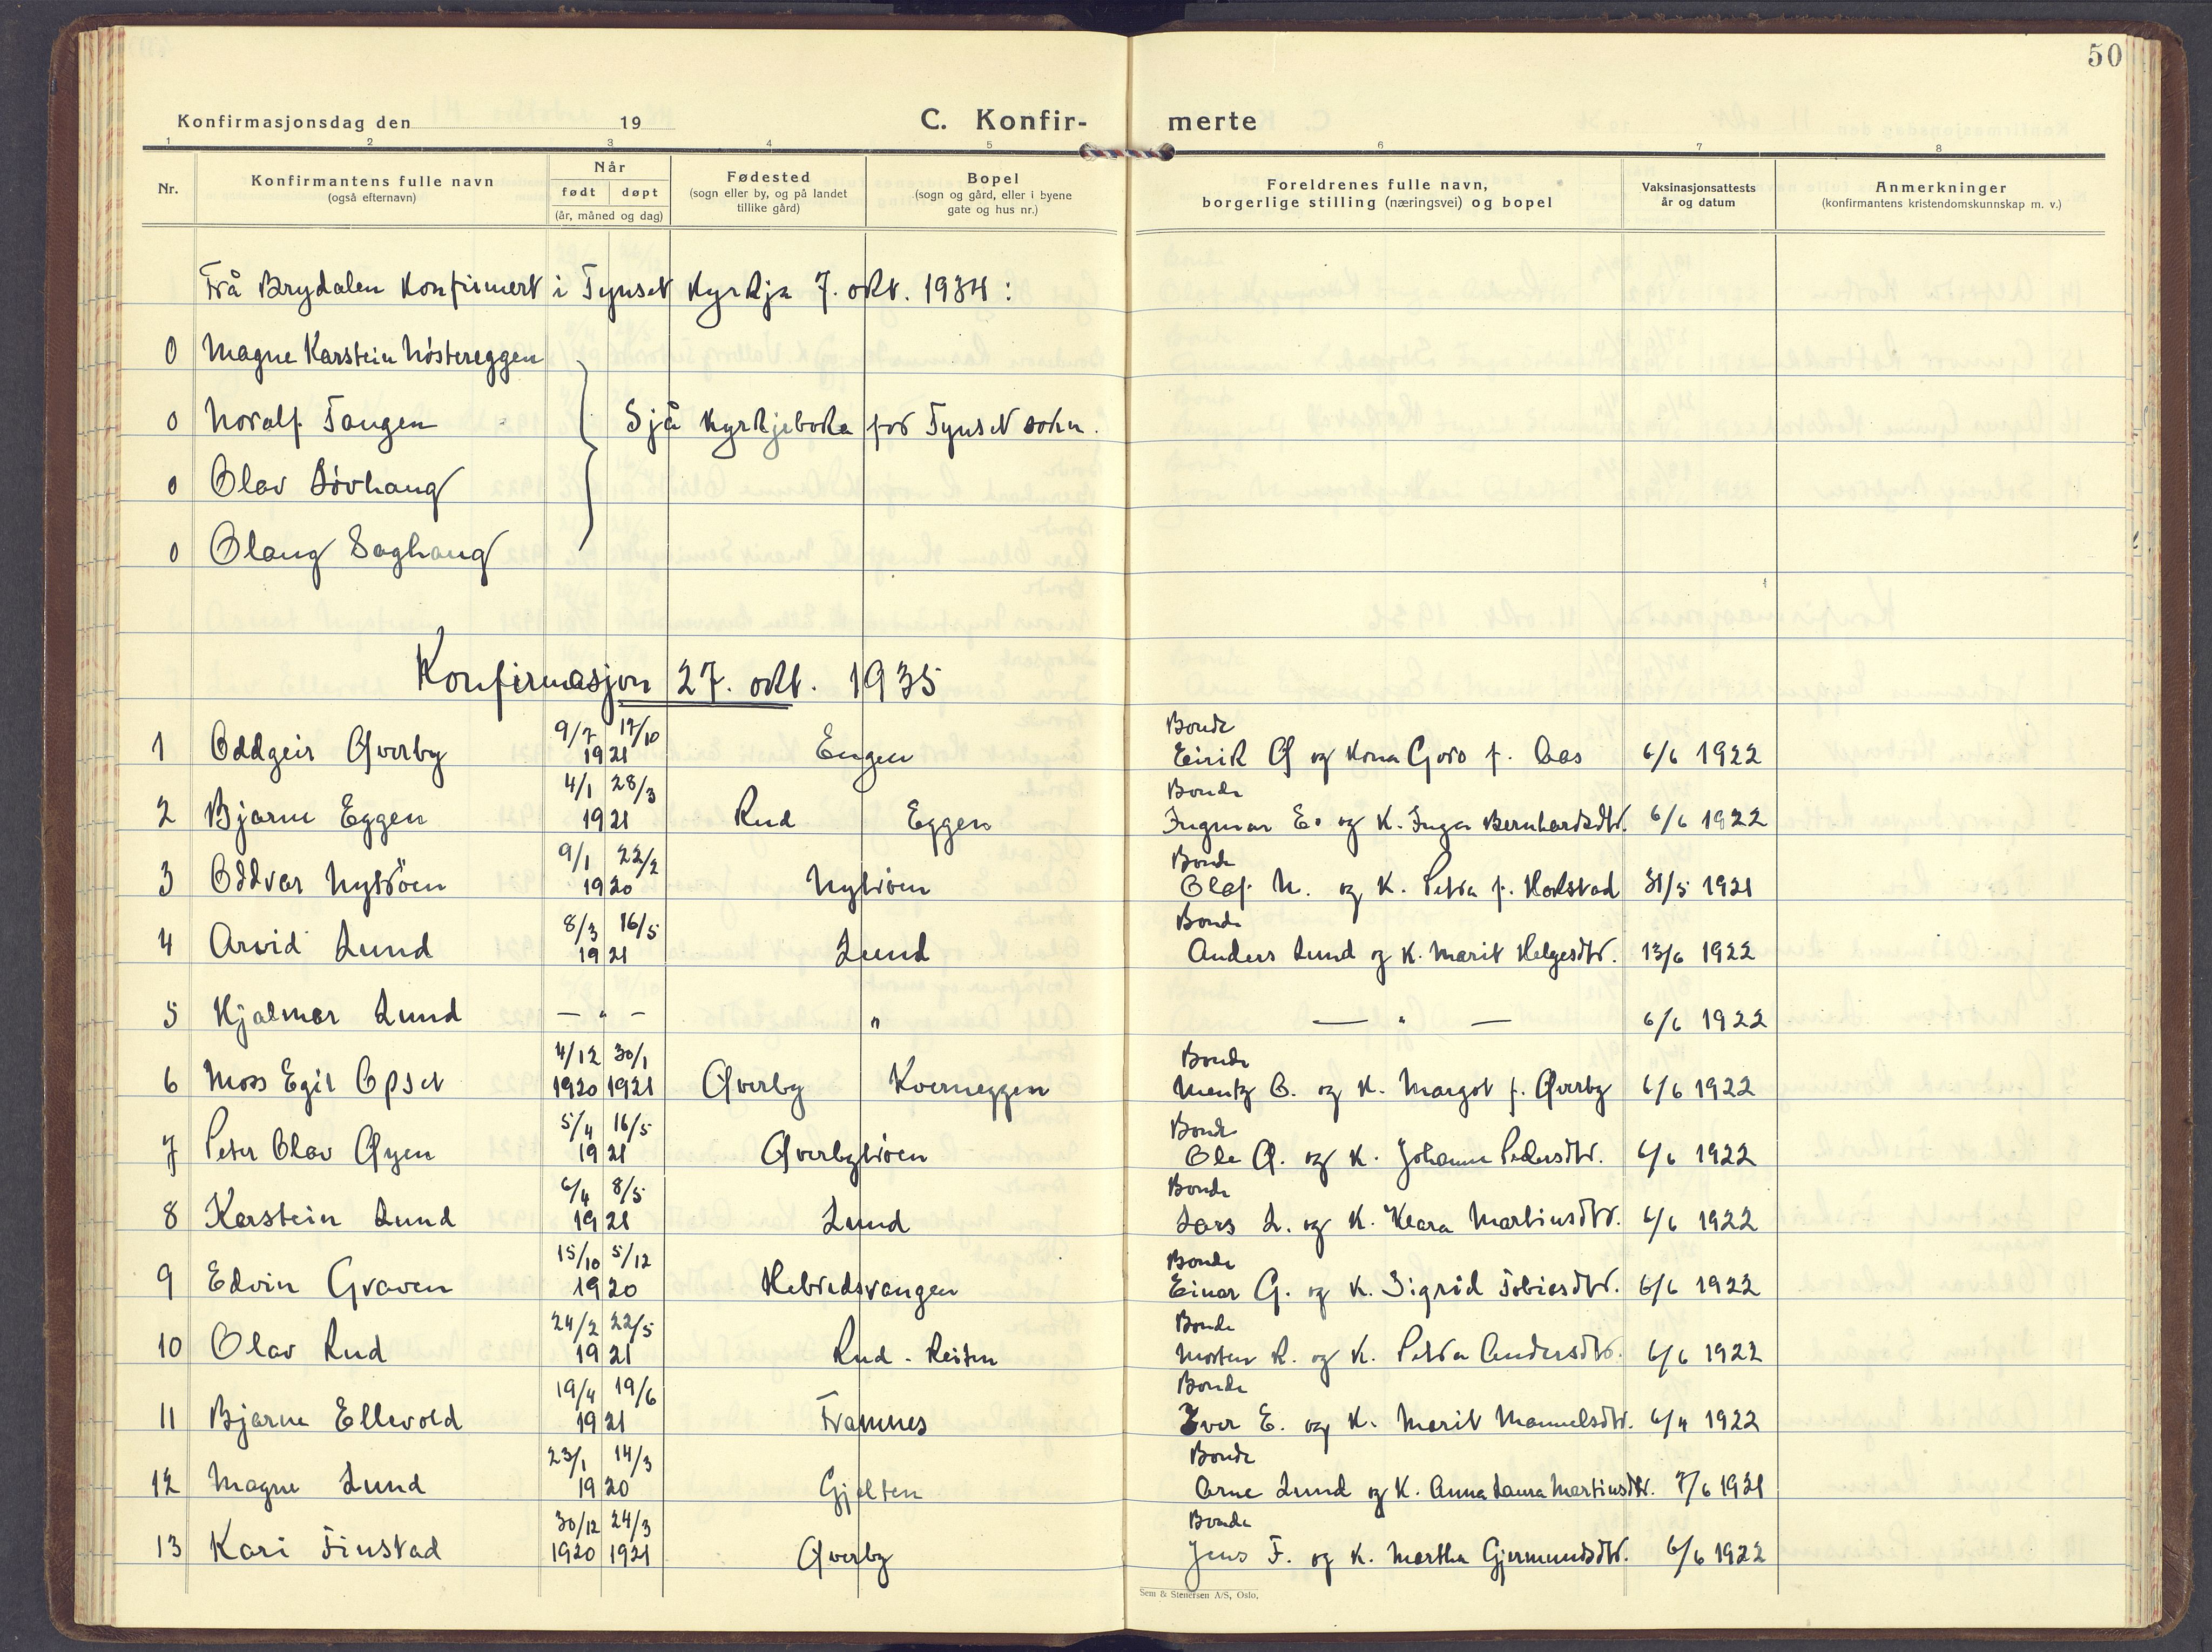 50
Konfirmasjonsdag den 19 C. Konfir- merte
1 2 3 4 5 6 7 8
Nr. Konfirmantens fulle navn (også efternavn) Når født døpt (år, måned og dag) Fødested (sogn eller by, og på landet tillike gård) Bopel (sogn og gård, eller i byene gate og hus nr.) Foreldrenes fulle navn, borgerlige stilling (næringsvei) og bopel Vaksinasjonsattests år og datum Anmerkninger (konfirmantens kristendomskunnskap m. v.)
Frå Brydalen konfirmert i Tynset Kyrkja 7. okt. 1934:
0 Magne Karstein Nøstereggen
0 Noralf Tangen Sjå Kyrkjeboka for Tynset sokn.
0 Olav Løvhaug
0 Olaug Saghaug
Konfirmasjon 27. okt. 1935
9/7 17/10 Bonde
1 Oddgeir Øverby 1921 Engen Eirik Ø og Kona Goro f. Aas 6/6 1922
4/1 28/3 Bonde
2 Bjarne Eggen 1921 Rud Eggen Ingmar E. og K. Inga Bernhardsdtr. 6/6 1922
9/1 22/2 Bonde
3 Oddvar Nytrøen 1920 Nytrøen Olaf N. og K. Petra f. Hokstad 31/5 1921
8/3 16/5 Bonde
4 Arvid Lund 1921 Lund Anders Lund og K. Marit Helgesdtr. 13/6 1922
5 Hjalmar Lund — " — " — " — 6/6 1922
4/12 30/1 Bonde
6 Moss Egil Opset 1920 1921 Øverby Kverneggen Mentz O. og K. Margot f. Øverby 6/6 1922
5/4 16/5 Bonde
7 Peter Olav Øyen 1921 Øverbytrøen Ole Ø. og K. Johanne Pedersdtr. 6/6 1922
6/4 8/5 Bonde
8 Karstein Lund 1921 Lund Lars L. og K. Klara Martinsdtr. 6/6 1922
15/10 5/12 Bonde
9 Edvin Graven 1920 Hebredsvangen Einar G. og K. Sigrid Tobiasdtr. 6/6 1922
24/2 22/5 Bonde
10 Olav Rud 1921 Rud - Reiten Morten R. og K. Petra Andersdtr. 6/6 1922
19/4 19/6 Bonde
11 Bjarne Ellevold 1921 Framnes Iver E. og K. Marit Manuelsdtr. 6/4 1922
23/1 14/3 Bonde
12 Magne Lund 1920 Gjelten Arne Lund og K. Anna Laura Martinsdtr. 7/6 1921
30/12 24/3 Bonde
13 Kari Finstad 1920 1921 Øverby Jens F. og K. Martha Gjermundsdtr. 6/6 1922
Sem & Stenersen A/S, Oslo.